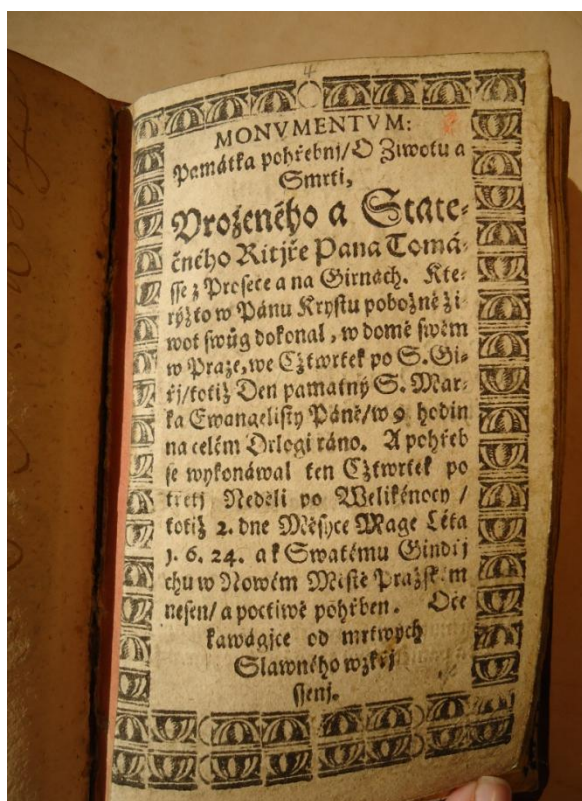 4
MONVMENTVM:
Památka pohřebnj/ O Žiwotu a
Smrti,
Vrozeného a State-
čného Ritjře Pana Tomá-
sse z Prosece a na Girnách. Kte-
rýžto w Pánu Krystu pobožně ži-
wot swůg dokonal, w domě swém
w Praze, we Cžtwrtek po S. Gi-
řj/ totiž Den památný S. Mar-
ka Ewangelisty Páně/ w 9 hodin
na celém Orlogi ráno. A pohřeb
se wykonáwal ten Cžtwrtek po
třetj Neděli po Welikénocy /
totiž 2. dne Měsyce Mage Léta
1. 6. 24. a k Swatému Gindřj
chu w Nowém Městě Pražském
nesen/ a poctiwě pohřben. Oče
kawágjce od mrtwých
Slawného wzkřj
ssenj.